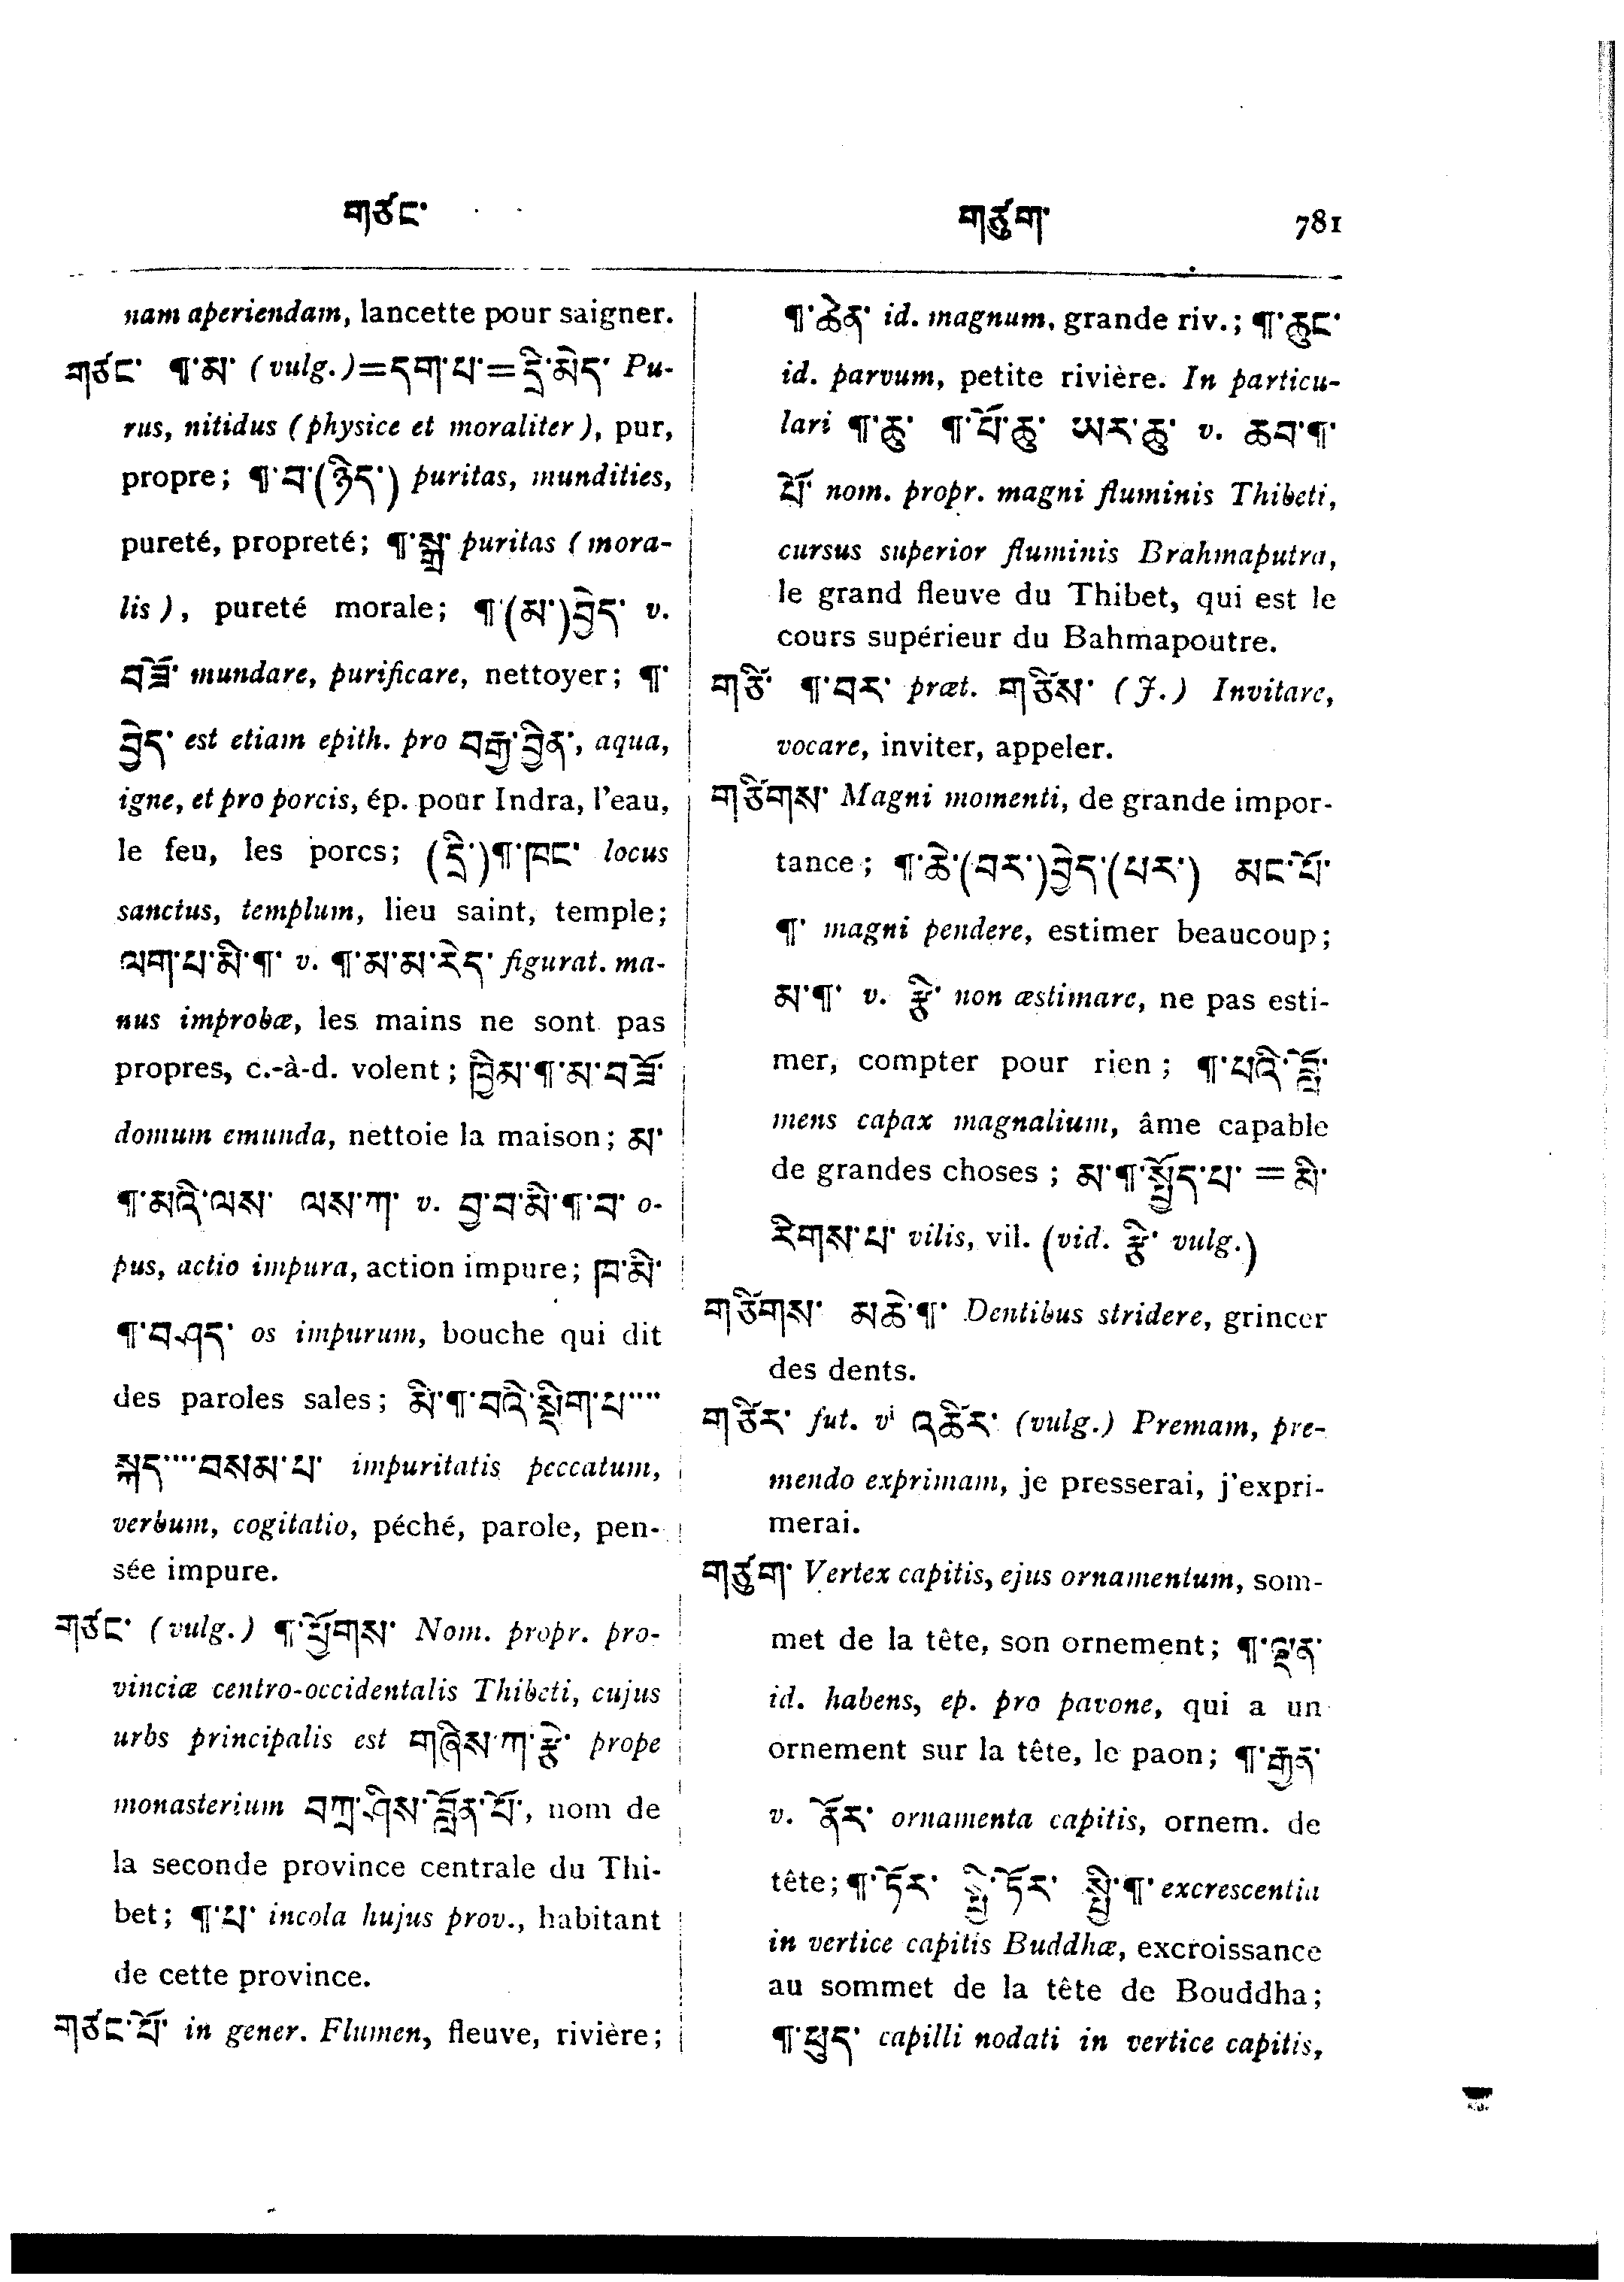 གཙང་
གཙུག་ 781
nam aperiendam, lancette pour saigner.
གཙང་ ¶་མ་ (vulg.)=དག་པ་=དྲི་མེད་ Pu-
rus, nitidus (physice et moraliter), pur,
propre; ¶་བ་(ཉིད་) puritas, mundities,
pureté, propreté; ¶་སྒྲ་ puritas (mora-
lis), pureté morale; ¶་(མ་)བྱེད་ v.
བཟོ་ mundare, purificare, nettoyer; ¶་
བྱེད་ est etiam epith. pro བརྒྱ་བྱིན་, aqua,
igne, et pro porcis, ép. pour Indra, l'eau,
le feu, les porcs; (དྲི་)¶་ཁང་ locus
sanctus, templum, lieu saint, temple;
ལག་པ་མི་¶་ v. ¶་མ་མ་རེད་ figurat. ma-
nus improbæ, les mains ne sont pas
propres, c.-à-d. volent; ཁྱིམ་¶་མ་བཟོ་
domum emunda, nettoie la maison; མ་
¶་མའི་ལས་ ལས་ཀ་ v. བྱ་བ་མི་¶་བ་ o-
pus, actio impura, action impure; ཁ་མི་
¶་བ་ཤད་ os impurum, bouche qui dit
des paroles sales; མི་¶་བའི་སྡིག་པ་....
སྐད་....བསམ་པ་ impuritatis peccatum,
verbum, cogitatio, péché, parole, pen-
sée impure.
གཙང་ (vulg.) ¶་ཕྱོགས་ Nom. propr. pro-
vinciæ centro-occidentalis Thibeti, cujus
urbs principalis est གཞིས་ཀ་རྩེ་ prope
monasterium བཀྲ་ཤིས་བློན་པོ་, nom de
la seconde province centrale du Thi-
bet; ¶་པ་ incola hujus prov., habitant
de cette province.
གཙང་པོ་ in gener. Flumen, fleuve, rivière;
¶་ཆེན་ id. magnum, grande riv.; ¶་ཆུང་
id. parvum, petite rivière. In particu-
lari ¶་ཆུ་ ¶་པོ་ཆུ་ ཡར་ཆུ་ v. ཆབ་¶་
པོ་ nom. propr. magni fluminis Thibeti,
cursus superior fluminis Brahmaputra,
le grand fleuve du Thibet, qui est le
cours supérieur du Bahmapoutre.
གཙི་ ¶་བར་ præt. གཙིས་ (J.) Invitare,
vocare, inviter, appeler.
གཙིགས་ Magni momenti, de grande impor-
tance; ¶་ཆེ་(བར་)བྱེད་(པར་) མང་པོ་
¶་ magni pendere, estimer beaucoup;
མ་¶་ v. རྩི་ non æstimare, ne pas esti-
mer, compter pour rien; ¶་པའི་བློ་
mens capax magnalium, âme capable
de grandes choses; མ་¶་སྤྱོད་པ་ = མི་
རིགས་པ་ vilis, vil. (vid. རྩི་ vulg.)
གཙིགས་ མཆེ་¶་ Dentibus stridere, grincer
des dents.
གཙིར་ fut. vi འཚིར་ (vulg.) Premam, pre-
mendo exprimam, je presserai, j'expri-
merai.
གཙུག་ Vertex capitis, ejus ornamentum, som-
met de la tête, son ornement; ¶་ལྡན་
id. habens, ep. pro pavone, qui a un
ornement sur la tête, le paon; ¶་རྒྱན་
v. ནོར་ ornamenta capitis, ornem. de
tête; ¶་ཏོར་ སྤྱི་ཏོར་ སྤྱི་¶་ excrescentia
in vertice capitis Buddhæ, excroissance
au sommet de la tête de Bouddha;
¶་ཕུད་ capilli nodati in vertice capitis,